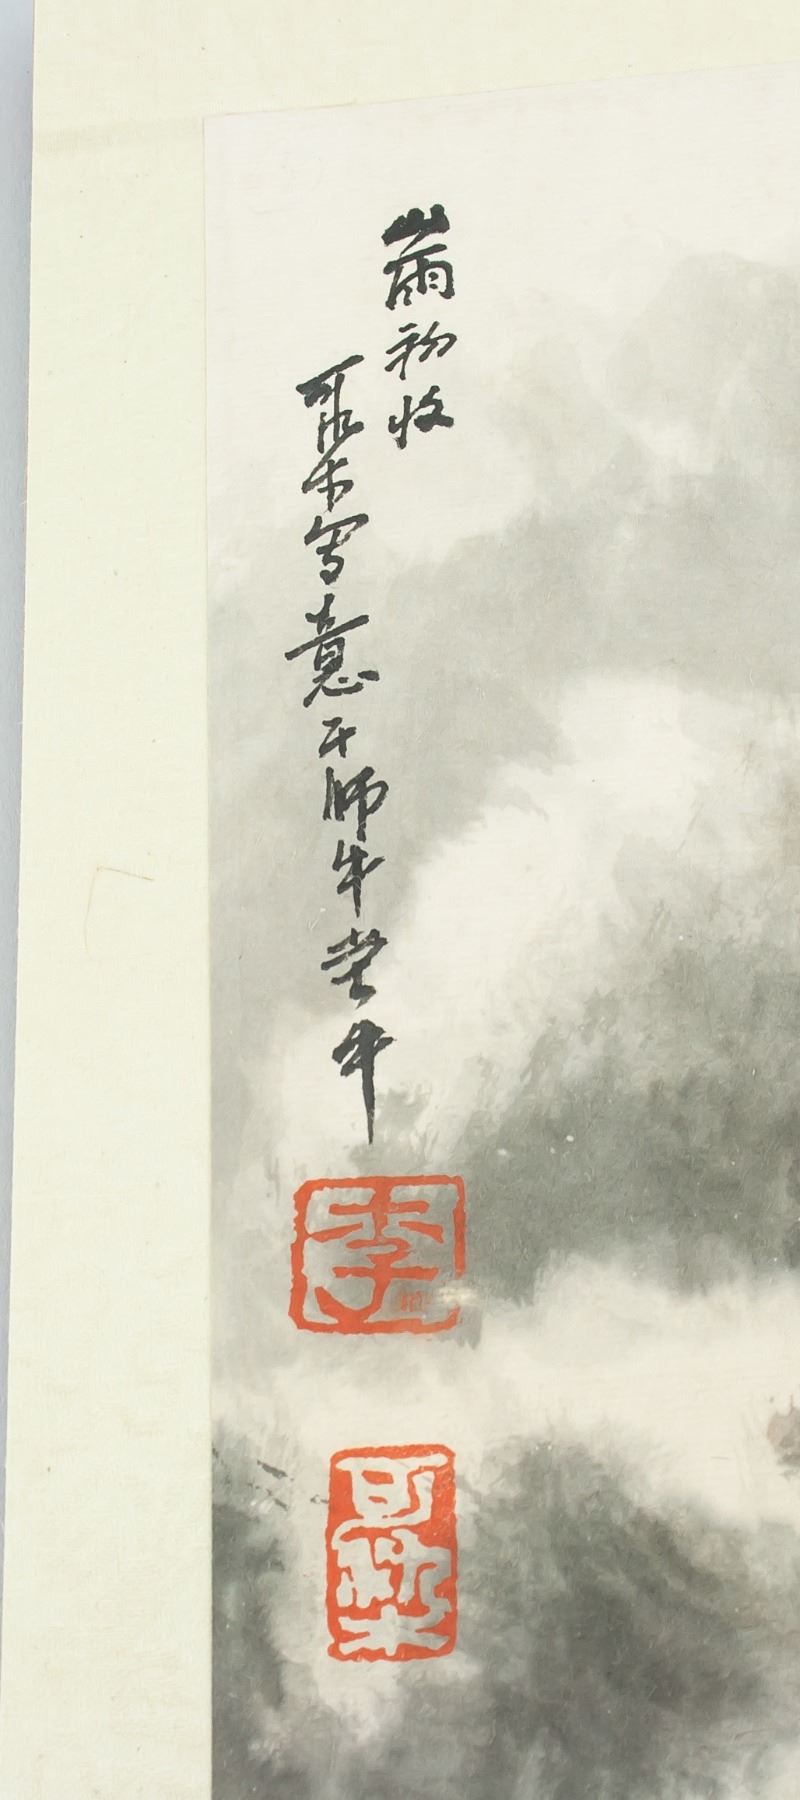 山雨初收
可染写意于师牛堂
李
可染